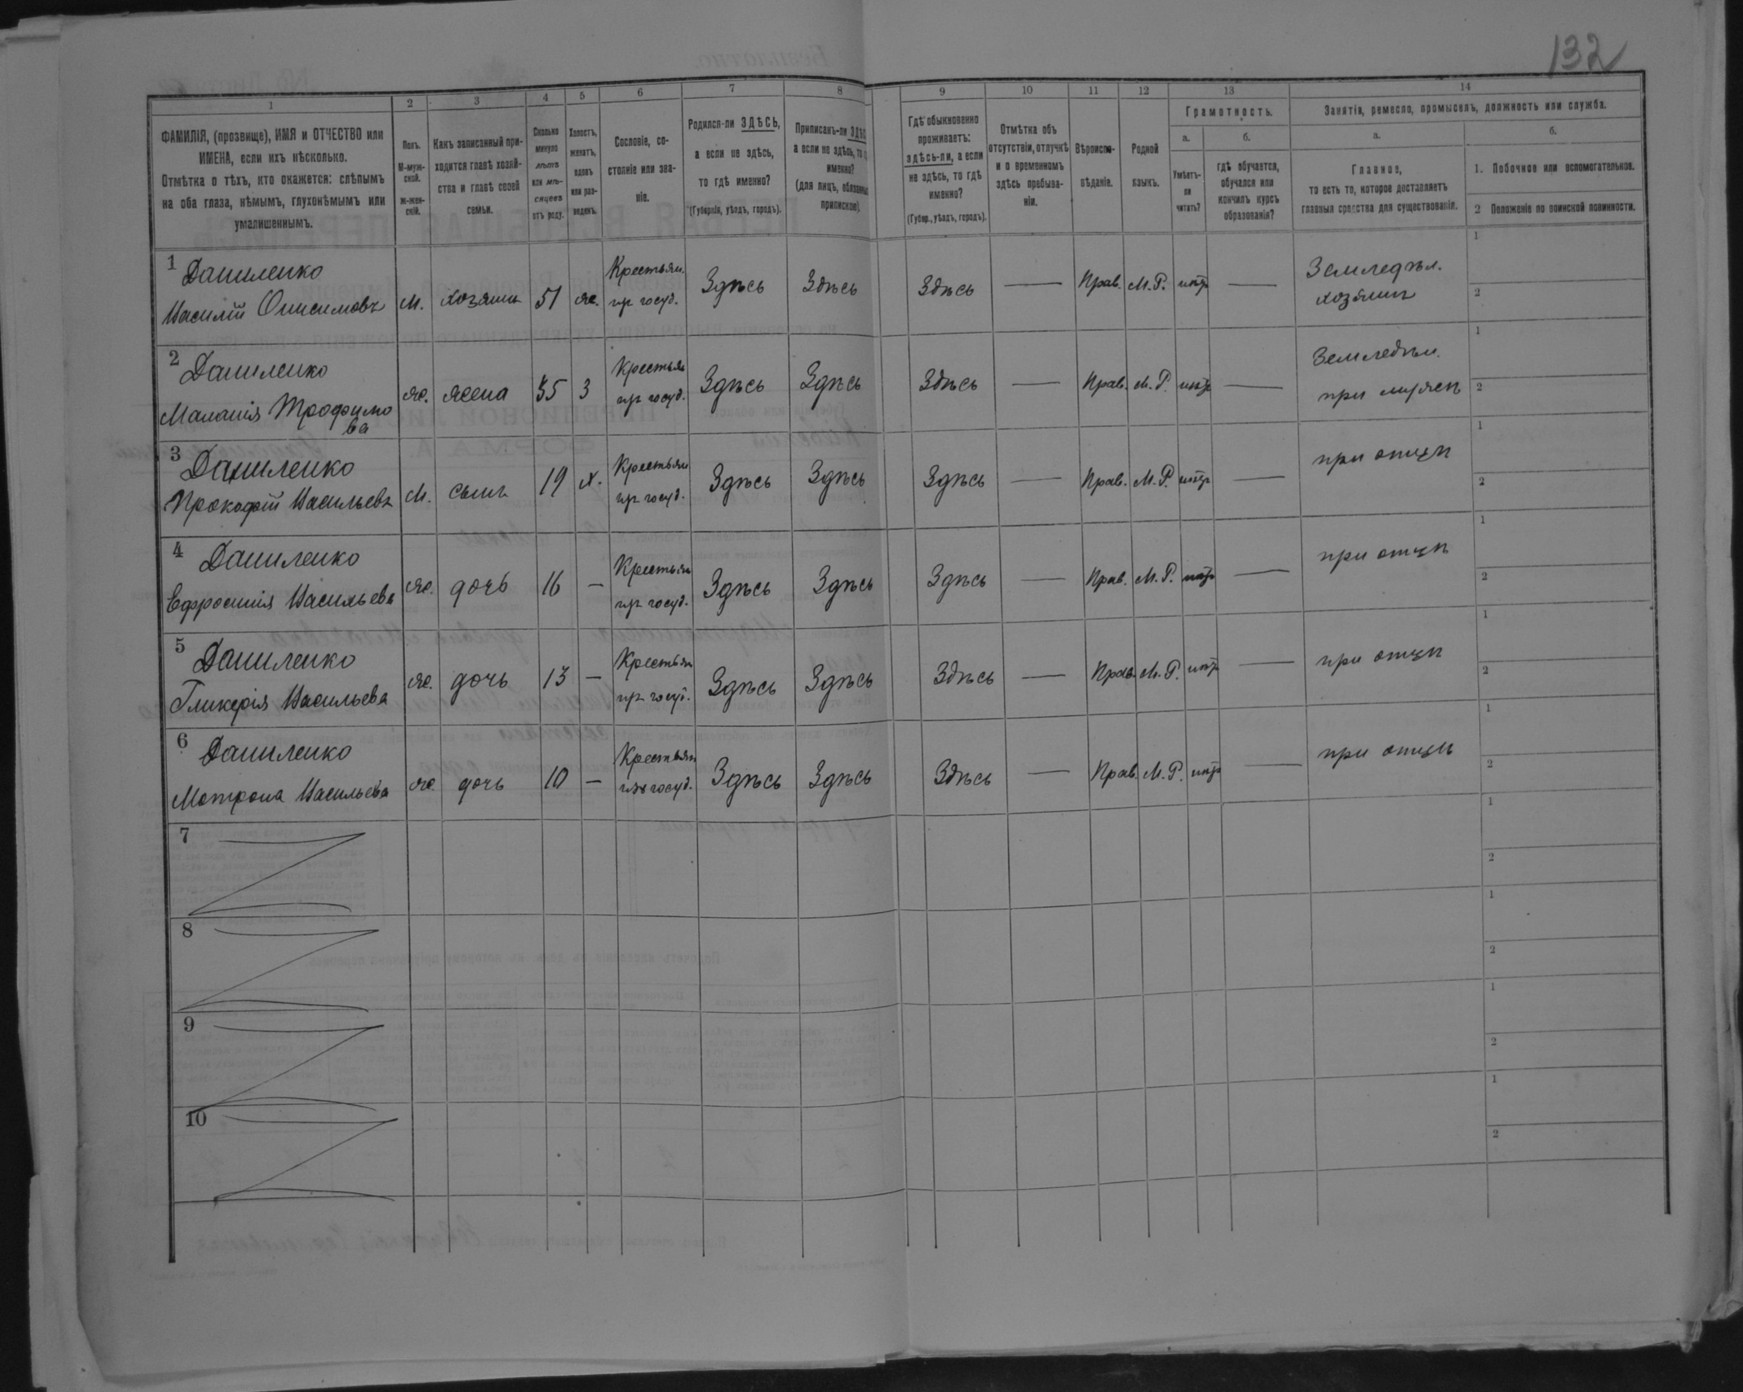 132
1 2 3 4 5 6 7 8 9 10 11 12 13 14
ФАМИЛІЯ, (прозвище), ИМЯ и ОТЧЕСТВО или
ИМЕНА, если ихъ нѣсколько.
Отмѣтка о тѣхъ, кто окажется: слѣпымъ
на оба глаза, нѣмымъ, глухонѣмымъ или
умалишеннымъ.
Полъ.
М-муж-
ской.
Ж-жен-
скій.
Какъ записанный при-
ходится главѣ хозяй-
ства и главѣ своей
семьи.
Сколько
минуло
лѣтъ
или мѣ-
сяцевъ
отъ роду.
Холостъ,
женатъ,
вдовъ
или раз-
веденъ.
Сословіе, со-
стояніе или зва-
ніе.
Родился-ли ЗДѢСЬ,
а если не здѣсь,
то гдѣ именно?
(Губернія, уѣздъ, городъ).
Приписанъ-ли
а если не здѣсь, то
именно?
(для лицъ,
припискою).
Гдѣ обыкновенно
проживаетъ:
здѣсь-ли, а если
не здѣсь, то гдѣ
именно?
(Губер., уѣздъ, городъ).
Отмѣтка объ
отсутствіи, отлучкѣ
и о временномъ
здѣсь пребыва-
ніи.
Вѣроиспо-
вѣданіе.
Родной
языкъ.
Грамотность.
а.
Умѣетъ-
ли
читать?
б.
гдѣ обучается,
обучался или
кончилъ курсъ
образованія?
Занятія, ремесло, промыселъ, должность или служба.
а.
Главное,
то есть то, которое доставляетъ
главныя средства для существованія.
б.
1. Побочное или вспомогательное.
2 Положеніе по воинской повинности.
1 Даниленко Крестьян. Земледѣл. 1
Василій Онисимовъ М. хозяинъ 51 ж. изъ госуд. Здѣсь Здѣсь Здѣсь — Прав. М. Р. нѣтъ — хозяинъ 2
2 Даниленко Крестьян Земледѣл. 1
Маланія Трофимо Ж. жена 35 З изъ госуд. Здѣсь Здѣсь Здѣсь — Прав. М. Р. нѣтъ — при мужѣ 2
ва
3 Даниленко Крестьян при отцѣ 1
Прокофій Васильевъ М. сынъ 19 Х. изъ госуд. Здѣсь Здѣсь Здѣсь — Прав. М. Р. нѣтъ — 2
4 Даниленко Крестьян при отцѣ 1
Ефросинія Васильева Ж. дочь 16 — изъ госуд. Здѣсь Здѣсь Здѣсь — Прав. М. Р. нѣтъ — 2
5 Даниленко Крестьян при отцѣ 1
Гликерія Васильева Ж. дочь 13 — изъ госуд. Здѣсь Здѣсь Здѣсь — Прав. М. Р. нѣтъ — 2
6 Даниленко Крестьян при отцѣ 1
Мотрона Васильева Ж. дочь 10 — изъ госуд. Здѣсь Здѣсь Здѣсь — Прав. М. Р. нѣтъ — 2
7 1
2
8 1
2
9 1
2
10 1
2